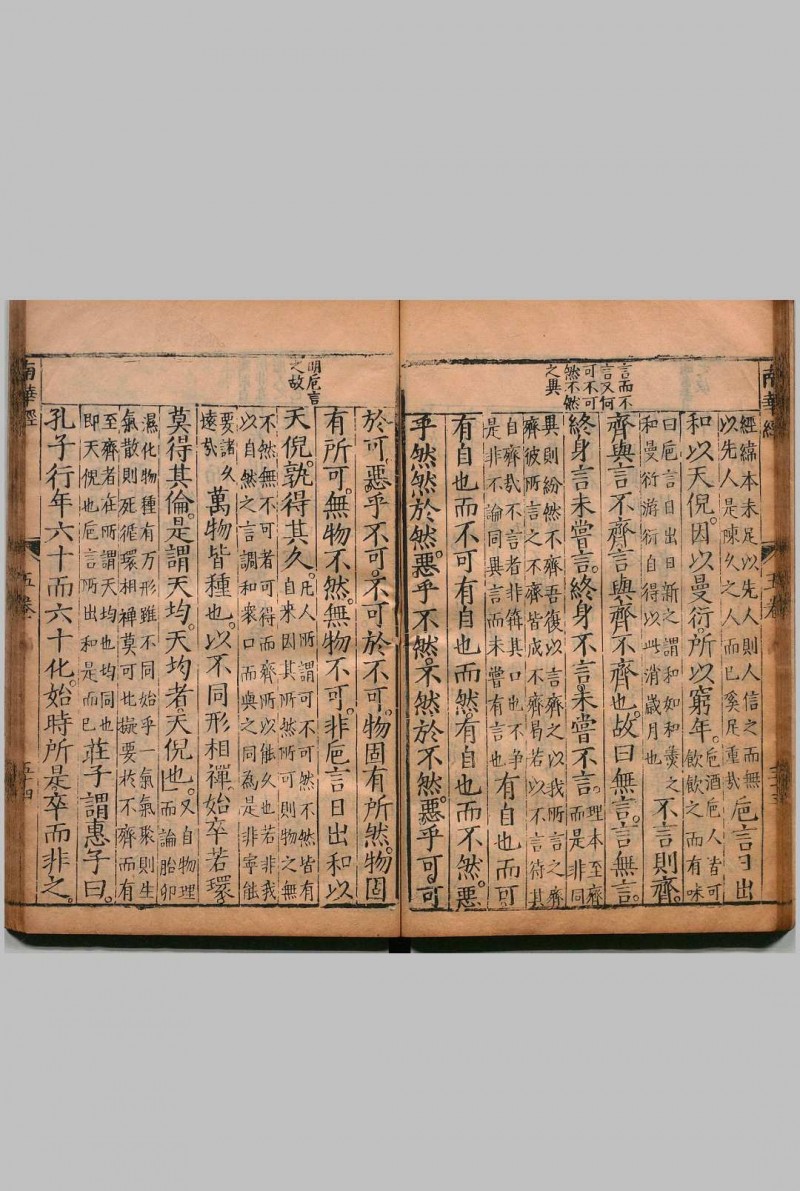 南華經
五卷
五十三
言而不
言又何
可不可
然不然
之異
經緯本未足以先人則人信之而無
以先人是陳久之人而已奚足重哉
巵言日出
和以天倪。因以曼衍。所以窮年。
巵酒巵人皆可
飲飲之而有味
曰巵言日出日新之謂和如和羹之
和曼衍游衍自得以此消歲月也
不言則齊。
齊與言不齊言與齊不齊也。故曰無言。言無言。
終身言未嘗言。終身不言。未嘗不言。
理本至齊
而是非同
異則紛然不齊吾復以言齊之以我所言之齊
齊彼所言之不齊皆成不齊曷若以不言待其
自齊哉不言者非箝其口也不争
是非不論同異言而未嘗有言也
有自也而可
有自也而不可有自也而然。有自也而不然。惡
乎然然於然。惡乎不然。不然於不然。惡乎可可
明巵言
之故
於可。惡乎不可。不可於不可。物固有所然。物固
有所可。無物不然。無物不可。非巵言日出和以
天倪。孰得其久。
凡人所謂可不可然不然皆有
自来因其所然所可則物之無
不然無不可者可得而齊所以能久也若非我
以自然之言調和衆口而與之同為是非寧能
要諸久
遠哉
萬物皆種也。以不同形相禪。始卒若環
莫得其倫。是謂天均。天均者。天倪也。
又自物理
而論胎卵
濕化物種有万形雖不同始乎一氣氣聚則生
氣散則死循環相禪莫可比擬要於不齊而有
至齊者在所謂天均也均同也
即天倪也巵言所出和是而已
莊子謂惠子曰。
孔子行年六十而六十化。始時所是。卒而非之。
南華經
五卷
五十四